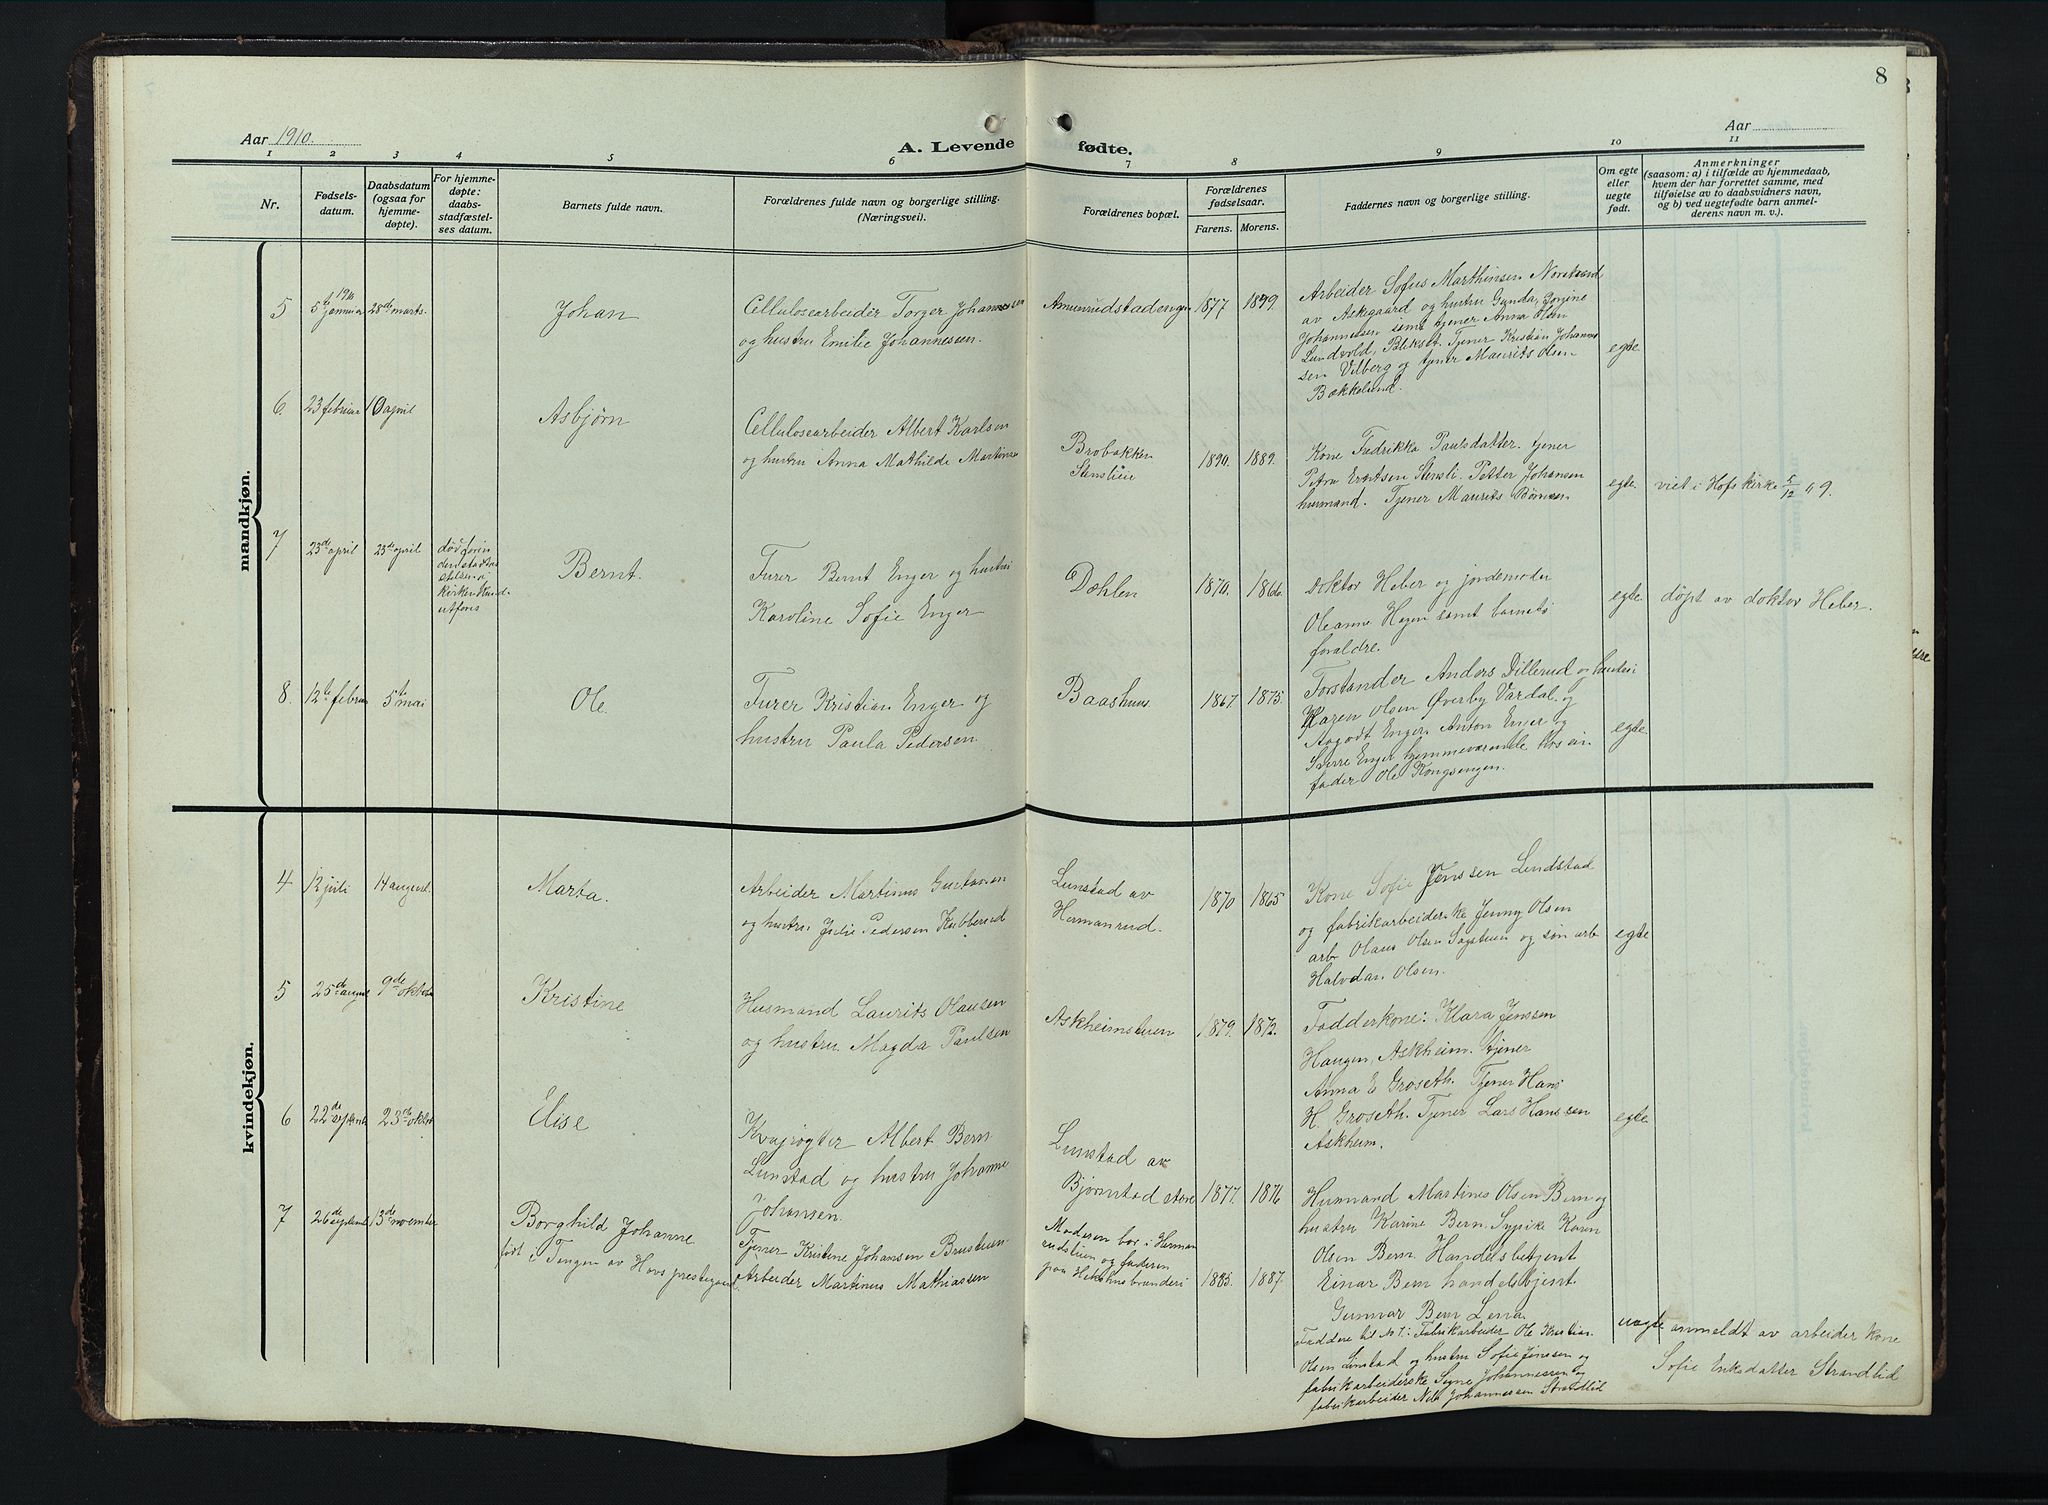 8
Aar 1910.
Aar
A. Levende fødte.
1 2 3 4 5 6 7 8 9 10 11
Nr.
Fødsels-
datum.
Daabsdatum
(ogsaa for
hjemme-
døpte).
For hjemme-
døpte:
daabs-
stadfæstel-
ses datum.
Barnets fulde navn.
Forældrenes fulde navn og borgerlige stilling.
(Næringsvei).
Forældrenes bopæl.
Forældrenes
fødselsaar.
Farens. Morens.
Faddernes navn og borgerlige stilling.
Om egte
eller
uegte
født.
Anmerkninger
(saasom: a) i tilfælde av hjemmedaab,
hvem der har forrettet samme, med
tilføielse av to daabsvidners navn,
og b) ved uegtefødte barn anmel-
derens navn m. v.).
mandkjøn.
5
5te januar
28de marts
Johan
Cellulosearbeider Torger Johannessen
og hustru Emilie Johannesen.
1877
Arbeider Sofus Marthinsen
av Askgaard og hustru Gunda
Johannessen samt tjener Anna Olsen
Lundvold, Blikset. Tjener Kristian Johannes
sen Vilberg og tjener Maurits Olsen
Bækkelund.
egte
6.
23 februar
10 april
Asbjørn
Cellulosearbeider Albert Karlsen
og hustru Anna Mathilde Martinsen
Brobakken
Stenslien
1890. 1889.
Kone Fredrikka Paulsdatter. tjener
Petra Erntsen Stensli. Petter Johansen
husmand. Tjener Maurits
egte.
viet i Hofs kirke 5/12 09.
7
23de april
23de april
død forin
den stadfæ
stelsen i
kirken kunde
utføres
Bernt.
Furer Bernt Enger og hustru
Karoline Sofie Enger
Dæhlen
1870. 1866.
Doktor Heber og jordemoder
Oleanne Hagen samt barnets
foraldre.
egte.
døpt av doktor Heber.
8.
12te februar
5te mai
Ole.
Furer Kristian Enger og
hustru Paula Pedersen.
Baashuus
1867. 1875.
Forstander Anders Dillerud og hustru
Karen Olsen Øverby Vardal og
Aagodt Enger. Anton Enger og
Sverre Enger hjemmeværende hos sin
fader Ole Kongsengen.
egte.
kvindekjøn.
4
12 juli
14 august
Marta.
Arbeider Martinus Gustavsen
og hustru Julie Pedersen Kubberud
Lunstad av
Hermanrud.
1870 1865
Kone Sofie Jenssen Lundstad
og fabrikarbeiderske Jenny Olsen
arb Olaus Olsen Sagstuen og søn arb
Halvdan Olsen.
egte
5
25de august
9de oktober
Kristine
Husmand Laurits Olausen
og hustru Magda Paulsen
Askheimstuen
1879. 1872.
Fadderkone: Klara Jenssen
Haugen, Askheim. tjener
Anna E Grøseth. Tjener Hans
H Grøseth. Tjener Lars Hanssen
Askheim.
6
22de september
23de oktober
Elise
Kvægrøgter Albert Bern
Lunstad og hustru Johanne
Johansen.
Lunstad av
Bjørnstad store
1877. 1876
Husmand Martines Olsen Bern og
hustru Karine Bern. Sypike Karen
Olsen Bern. Handelsbetjent
Einar Bern handelsbetjent.
Gunnar Bern Lena.
egte.
7
26de september
13de november
Borghild Johanne
født i Tengen av Hovs prestegaard.
Tjener Kristine Johansen Brustuen
Arbeider Martinus Mathiassen
Moderen bor i Herman
rudstuen og faderen
paa
1885. 1887.
Faddere til No 7: Fabrikarbeider Ole Kristian
Olsen Linstad og hustru Sofie Jenssen og
fabrikarbeiderske Signe Johannessen og
fabrikarbeider Nils Johannessen Strandlid
uegte
anmeldt av arbeider kone
Sofie Eriksdatter Strandlid